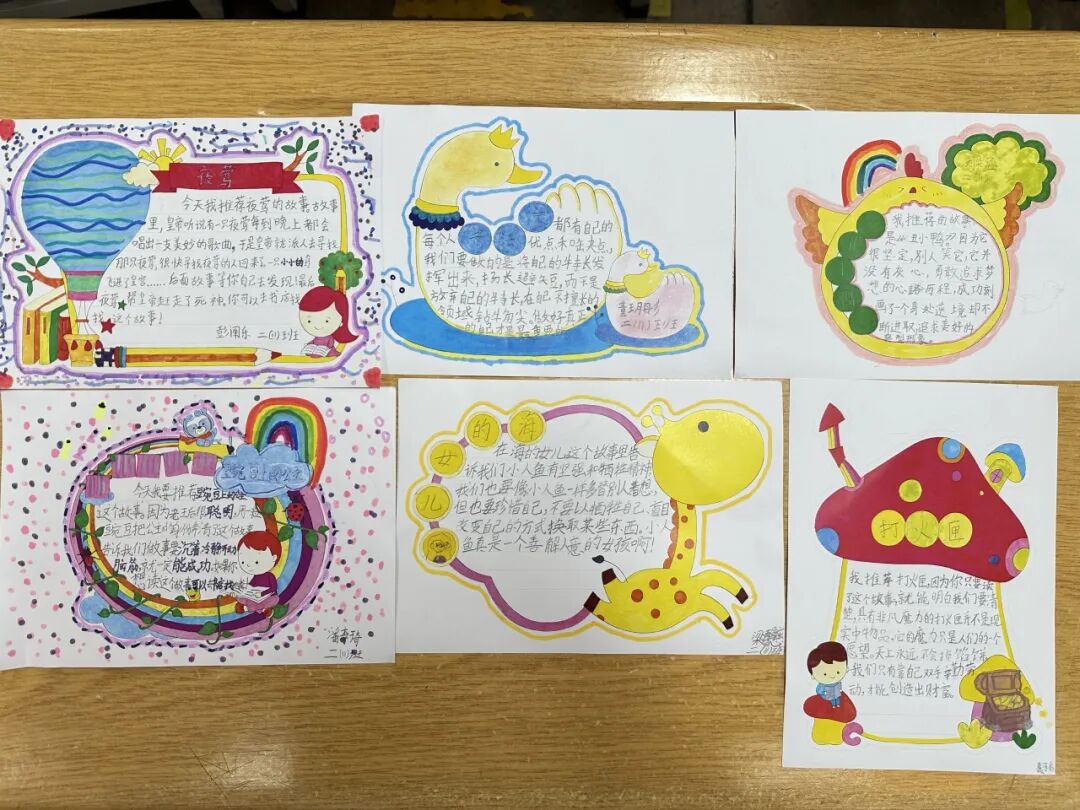 夜莺
今天我推荐夜莺的故事,故事
里,皇帝听说有一只夜莺每到晚上都会
唱出一支美妙的歌曲,于是皇帝就派人去寻找
那只夜莺,很快寻找夜莺的人回来了,一只小小的
飞进了皇宫……后面故事等你自己去发现!最后
夜莺帮皇帝赶走了死神,你可以去书店找
找这个故事!
二(1)班
每个人都有自己的
优点和缺点,
我们要做的是将自己的牛长发
挥出来,扬长避短,而不是
放弃自己的牛长,在自己不擅长的
领域钻牛角尖,做好真正
的自己才最重要
二(1)班
我推荐的故事
是丑小鸭,因为它
很坚定,别人笑它,它并
没有灰心,勇敢追求梦
想的心路历程,成功刻
画了一个身处逆境却不
断进取追求美好的
典型形象。
豌豆上的公主
今天我要推荐豌豆上的公主
这个故事,因为老王后很聪明,用一
豌豆把公主
告诉我们做事要沉着冷静,动
脑筋,就一定能成功,如果你
想读这个故事可以
二(1)班
海的女儿
在海的女儿这个故事里告
诉我们小人鱼有坚强和牺牲精神
我们也要像小人鱼一样多替别人着想,
但也要珍惜自己,不要以牺牲自己、盲目
改变自己的方式换取某些东西,小人
鱼真是一个善解人意的女孩啊!
二(1)班
打火匣
我推荐打火匣,因为你只要读
了这个故事,就能明白我们要清
楚,具有非凡魔力的打火匣并不是现
实中物品,它的魔力只是人们的一个
愿望。天上永远不会掉馅饼,
我们只有靠自己双手辛勤劳
动,才能创造出财富。